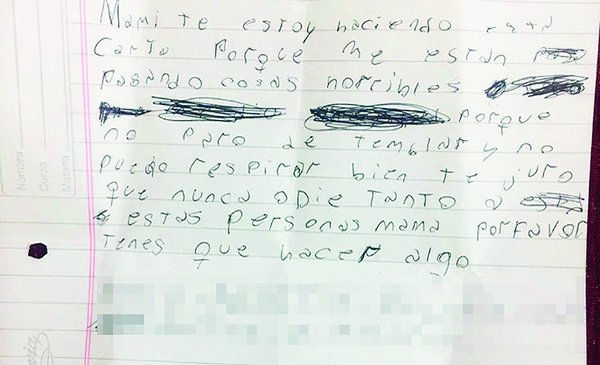 Mami te estoy haciendo esta
Carta Porque me estan
pasando cosas horribles
Porque
no paro de temblar y no
puedo respirar bien te juro
que nunca odie tanto a
estas personas mama porfavor
tenes que hacer algo
Nombre
Curso
Materia